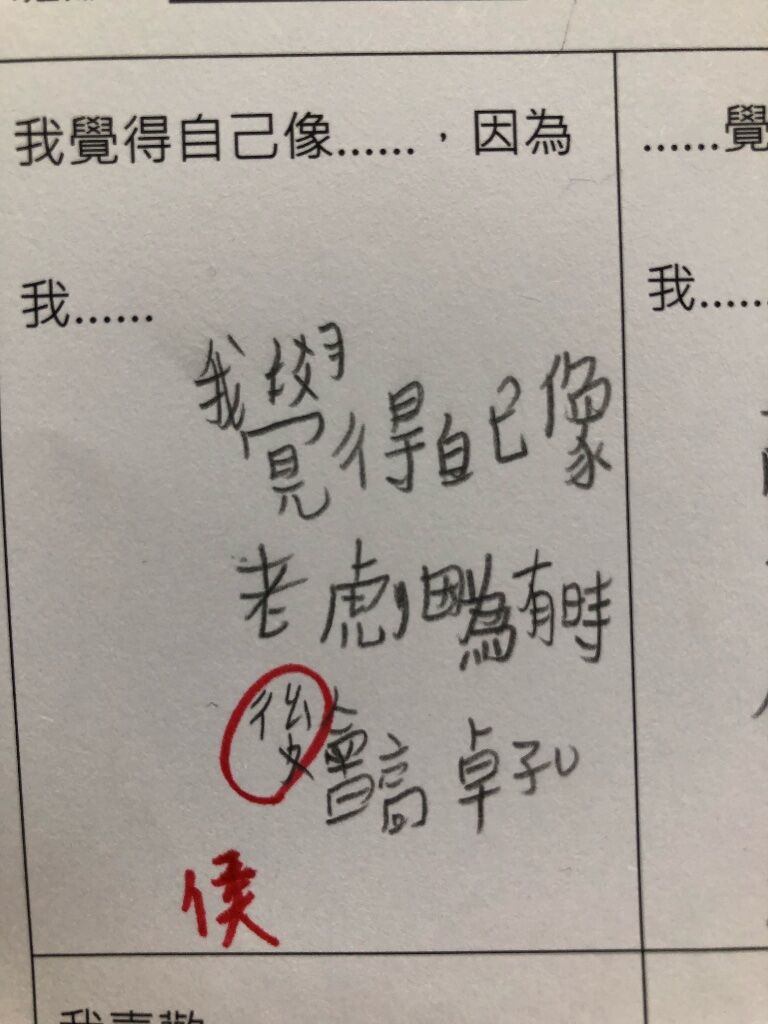 我覺得自己像……，因為
我……
我覺得自己像
老虎，因為有時
後會高卓孔
侯
……覺
我……
我喜歡